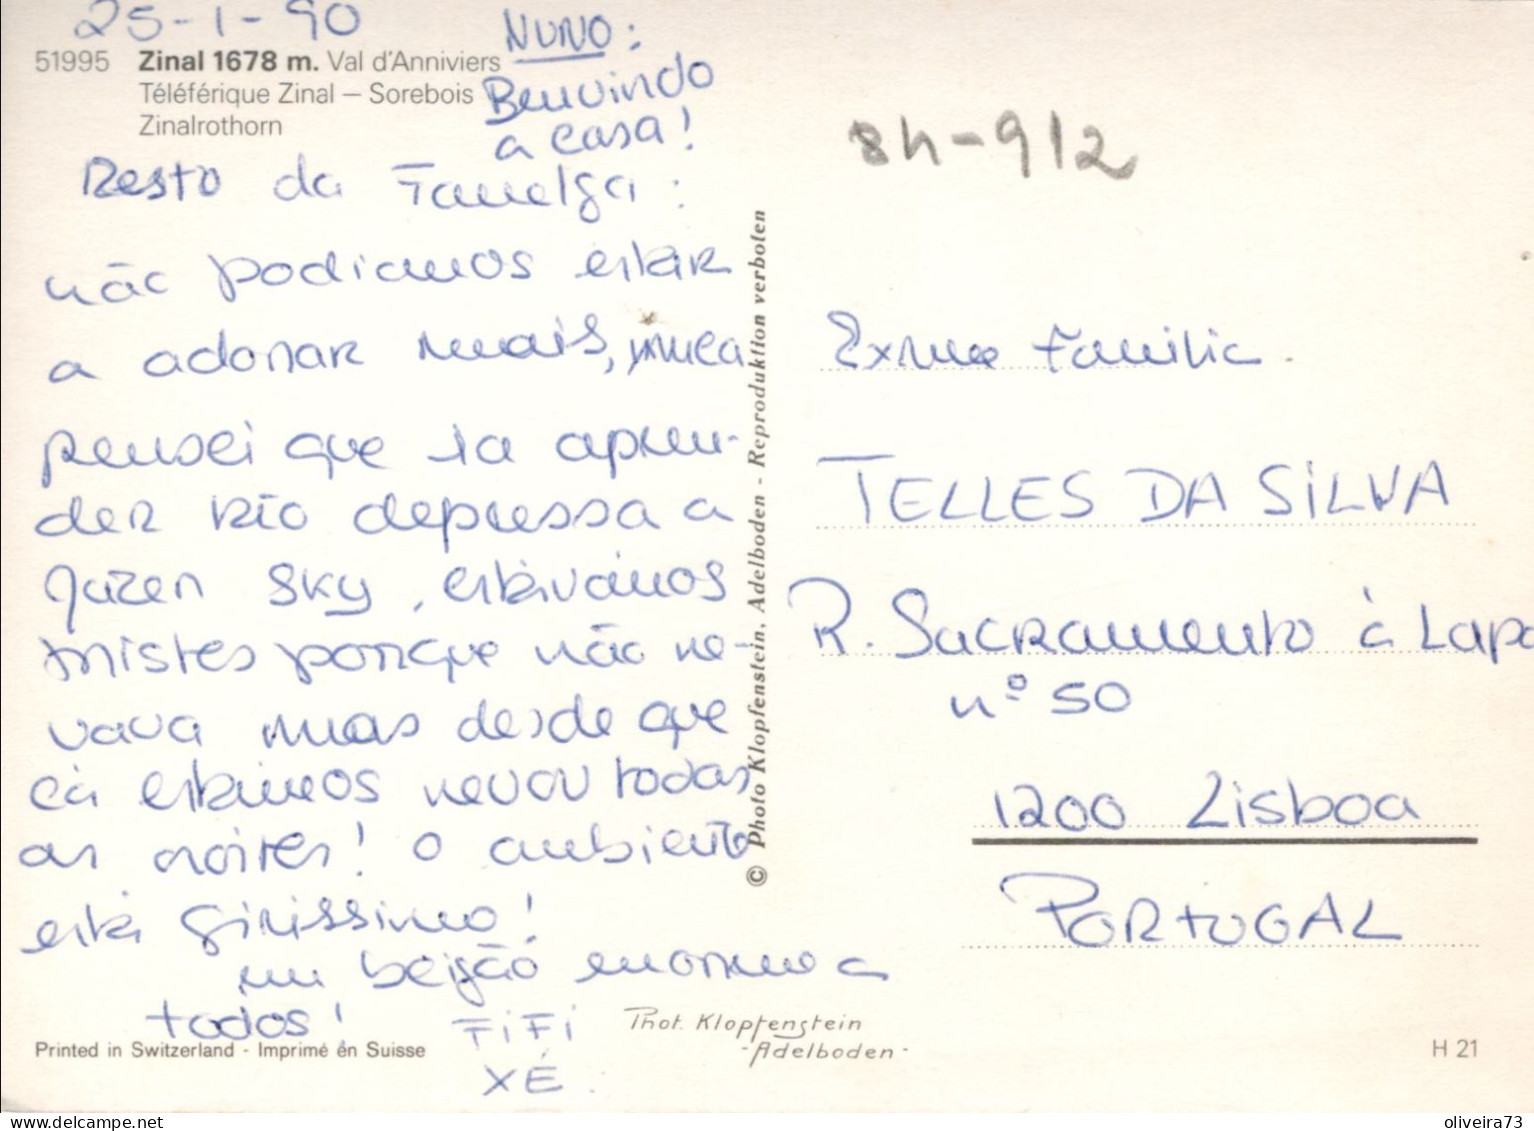 25-1-90
NUNO:
51995 Zinal 1678 m. Val d'Anniviers
Téléférique Zinal – Sorebois
Zinalrothorn
Benvindo
a casa!
Resto da Famelga:
não podiamos estar
a adorar mais, nunca
pensei que ia apren-
der tão depressa a
fazer sky, estávamos
tristes porque não ne-
vava mas desde que
cá estamos nevou todas
as noites! O ambiente
está giríssimo!
um beijão enorme a
todos!
FiFi
XÉ
Printed in Switzerland - Imprimé en Suisse
Phot. Klopfenstein
-Adelboden-
© Photo Klopfenstein, Adelboden - Reproduktion verboten
84-912
Exma Familia
TELLES DA SiLVA
R. Sacramento à Lapa
nº 50
1200 Lisboa
PORTUGAL
H 21
www.delcampe.net
oliveira73